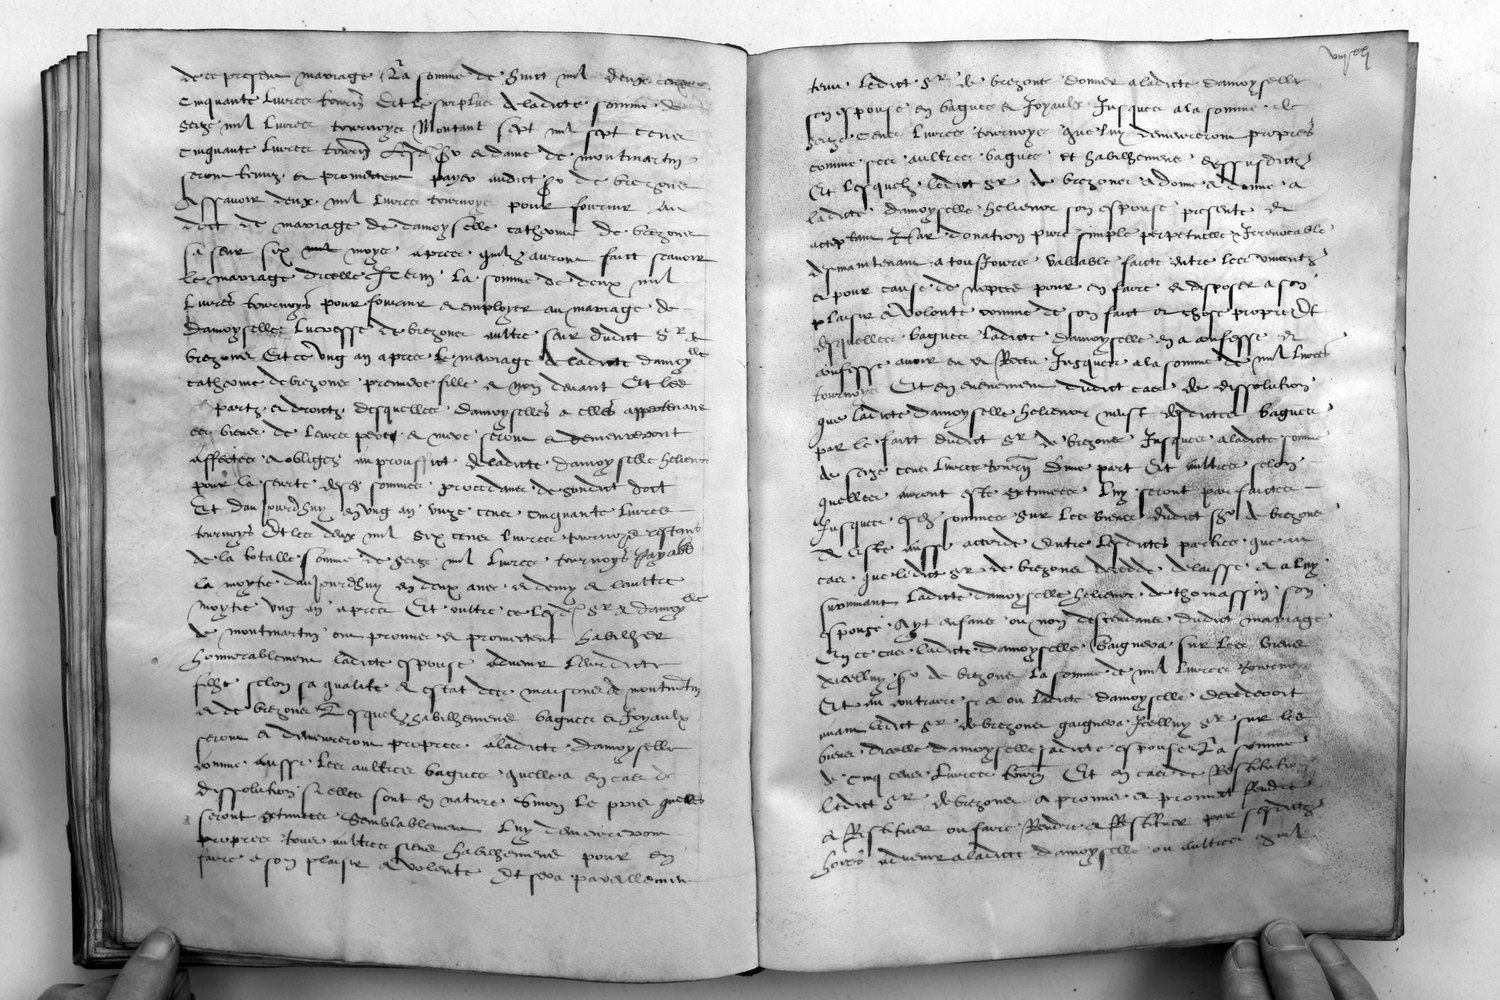 de ce present mariage La somme de huict mil deux cens
Cinquante Livres tourn Et le surplus de ladicte somme de
Seize mil Livres tournoys Montant sept mil sept cens
Cinquante Livres tourn et dame de montmartin
seront tenuz et promectent payer audict sr de brezons
Assavoir deux mil Livres tournoys pour fournir au
dict de mariage de damoyselle catherine de brezons
sa seur six moys apres quilz auront faict scavoir
le mariage dicelle Item La somme de deux mil
Livres tournoys pour fournir et employer au mariage de
damoyselle Lucresse de brezons aultre seur dudict sr de
brezons Et ce ung an apres le mariage de ladicte damoylle
catherine de brezons premiere fille et non devant Et les
partz et droictz desquelles damoyselles a elles appartenans
es biens de Leurs pere et mere seront et demeureront
affectes et obliges au prouffict de ladicte damoyselle helienor
pour la seurte desd sommes procedans de sondict dot
Et daujourdhuy en ung an unze cens cinquante Livres
tournoys Et les deux mil six cens Livres tournoys restans
de la totalle somme de seize mil Livres tournoys payable
La moytie daujourdhuy en deux ans et demy et laultre
moytie ung an apres Et oultre ce Lesd sr et damoylle
de montmartin ont promis et promectent habilher
honnorablement ladicte espouse advenir Leurdicte
filhe selon sa qualite et estat des maisons de montmartin
et de brezons Lesquelz habilhemens bagues et Joyaulx
seront et demeureront propres a ladicte damoyselle
comme aussi Les aultres bagues quelle a en cas de
dissolution si elles sont en nature Sinon Le pris quelles
seront extimees Semblablement Luy demeureront
propres tous aultres siens habilhemens pour en
faire a son plaisir et volente Et sera pareillement
tenu Ledict sr de brezons donner a ladicte damoyselle
son espouse en bagues et Joyaulx Jusques a la somme de
seize cens Livres tournoys que luy demeureront propres
comme ses aultres bagues et habilhemens dessusdictz
Et Lesquelz ledict sr de brezons a donne et donne a
ladicte damoyselle helienor son espouse presente et
acceptant Par donation pure simple perpetuelle et Irrevocable
desmaintenant a tousjours vallable faicte entre les vivantz
et pour cause de nopces pour en faire et disposer a son
plaisir et volonte comme de son faict et chose propre Et
desquelles bagues ladicte damoyselle en a confesse et
confesse avoir eu et Receu Jusques a la somme de mil Livres
tournoys Et en evenement dudict cas de dissolution
que ladicte damoyselle helienor neust desdictes bagues
par le faict dudict sr de brezons Jusques a ladicte somme
de seize cens Livres tourn dune part Et aultres selon
quelles auront este extimees Luy seront parfaictes
Jusques esd sommes sur Les biens dudict sr de brezons
Et este aussi accorde Entre Lesdictes parties que au
cas que ledict sr de brezons decede delaisse et a luy
survivant Ladicte damoyselle helienor de thomassin son
espouse Ayt enfans ou non descendans dudict mariage
En ce cas ladicte damoyselle Gaignera sur Les biens
dicelluy sr de brezons La somme de mil Livres tournoys
Et au contraire si ou ladicte damoyselle decederoit
avant ledict sr de brezons gaignera Icelluy sr sur les
biens dicelle damoyselle sadicte espouse La somme
de Cinq cens Livres tourn Et en cas de Restitution
Ledict sr de brezons a promis et promect Rendre
et Restituer ou faire Rendre et Restituer par sesdictz
hoirs advenir a ladicte damoyselle ou aultres quil